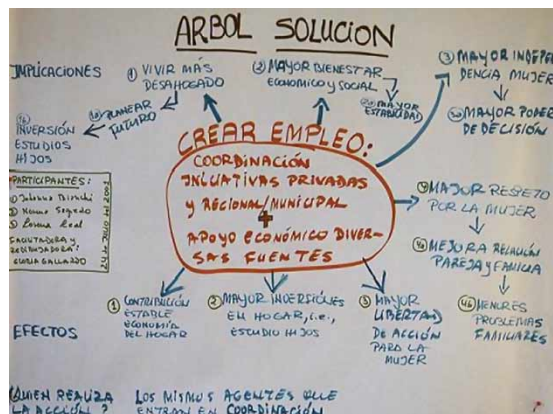 ARBOL SOLUCION
IMPLICACIONES
① VIVIR MÁS
DESAHOGADO
1a PLANEAR
FUTURO
1b
INVERSIÓN
ESTUDIOS
HIJOS
② MAYOR BIENESTAR
ECONOMICO Y SOCIAL
2a MAYOR
ESTABILIDAD
③ MAYOR INDEPEN
DENCIA MUJER
3a MAYOR PODER
DE DECISIÓN
CREAR EMPLEO:
COORDINACIÓN
INICIATIVAS PRIVADAS
Y REGIONAL/MUNICIPAL
+
APOYO ECONÓMICO DIVER-
SAS FUENTES
PARTICIPANTES:
④ MAJOR RESPETO
POR LA MUJER
4a MEJORA RELACIÓN
PAREJA Y FAMILIA
4b MENORES
PROBLEMAS
FAMILIARES
EFECTOS
① CONTRIBUCIÓN
ESTABLE
ECONOMÍA
DEL HOGAR
② MAYOR INVERSIONES
EN HOGAR, i.e.,
ESTUDIO HIJOS
③ MAYOR
LIBERTAD
DE ACCIÓN
PARA LA
MUJER
¿QUIEN REALIZA
LA ACCIÓN?
LOS MISMOS AGENTES QUE
ENTRAN EN COORDINACIÓN